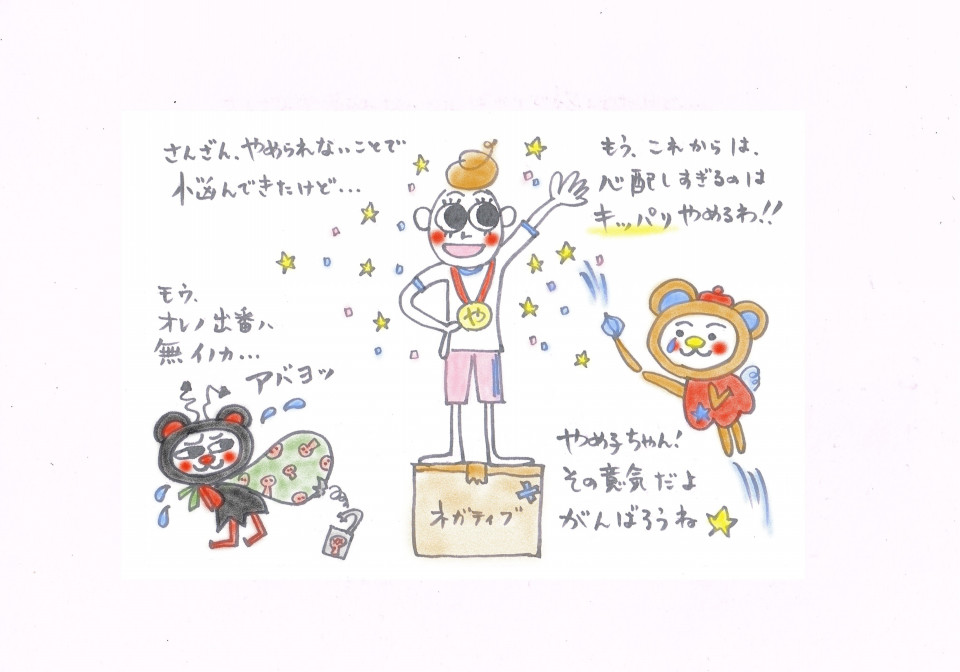 さんざん、やめられないことで
小悩んできたけど…
もう、これからは、
心配しすぎるのは
キッパリやめるわ!!
モウ、
オレノ出番ハ、
無イノカ…
アバヨッ
や
ネガティブ
やめ子ちゃん!
その意気だよ
がんばろうね